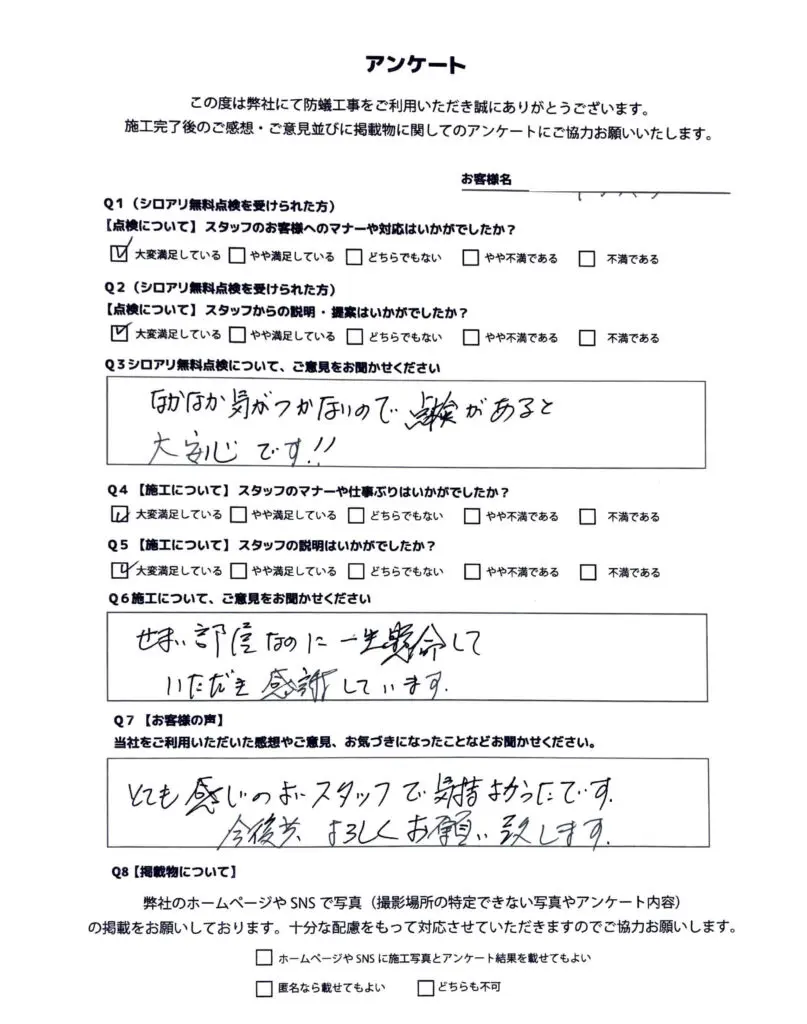 アンケート
この度は弊社にて防蟻工事をご利用いただき誠にありがとうございます。
施工完了後のご感想・ご意見並びに掲載物に関してのアンケートにご協力お願いいたします。
お客様名
Q1（シロアリ無料点検を受けられた方）
【点検について】スタッフのお客様へのマナーや対応はいかがでしたか？
大変満足している やや満足している どちらでもない やや不満である 不満である
Q2（シロアリ無料点検を受けられた方）
【点検について】スタッフからの説明・提案はいかがでしたか？
大変満足している やや満足している どちらでもない やや不満である 不満である
Q3シロアリ無料点検について、ご意見をお聞かせください
なかなか気がつかないので点検があると
大安心です!!
Q4【施工について】スタッフのマナーや仕事ぶりはいかがでしたか？
大変満足している やや満足している どちらでもない やや不満である 不満である
Q5【施工について】スタッフの説明はいかがでしたか？
大変満足している やや満足している どちらでもない やや不満である 不満である
Q6施工について、ご意見をお聞かせください
せまい部屋なのに一生懸命して
いただき感謝しています.
Q7【お客様の声】
当社をご利用いただいた感想やご意見、お気づきになったことなどお聞かせください。
とても感じのよいスタッフで気持よかったです.
今後共よろしくお願い致します.
Q8【掲載物について】
弊社のホームページやSNSで写真（撮影場所の特定できない写真やアンケート内容）
の掲載をお願いしております。十分な配慮をもって対応させていただきますのでご協力お願いします。
ホームページやSNSに施工写真とアンケート結果を載せてもよい
匿名なら載せてもよい どちらも不可